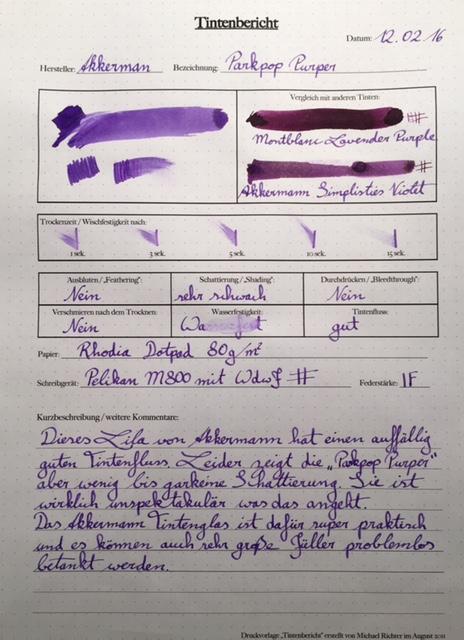 Tintenbericht
Datum: 12.02.16
Hersteller: Akkerman Bezeichnung: Parkpop Purper
Vergleich mit anderen Tinten:
Montblanc Lavender Purple
Akkermann Simplisties Violet
Trockenzeit / Wischfestigkeit nach:
1 sek. 3 sek. 5 sek. 10 sek. 15 sek.
Ausbluten / „Feathering": Schattierung / „Shading": Durchdrücken / „Bleedthrough":
Nein sehr schwach Nein
Verschmieren nach dem Trocknen: Wasserfestigkeit: Tintenfluss:
Nein Wasserfest gut
Papier: Rhodia Dotpad 80g/m²
Schreibgerät: Pelikan M800 mit Wdwf Federstärke: IF
Kurzbeschreibung / weitere Kommentare:
Dieses Lila von Akkermann hat einen auffällig
guten Tintenfluss. Leider zeigt die „Parkpop Purper"
aber wenig bis garkeine Schattierung. Sie ist
wirklich unspektakulär was das angeht.
Das Akkermann Tintenglas ist dafür super praktisch
und es können auch sehr große Füller problemlos
betankt werden.
Druckvorlage „Tintenbericht" erstellt von Michael Richter im August 2011